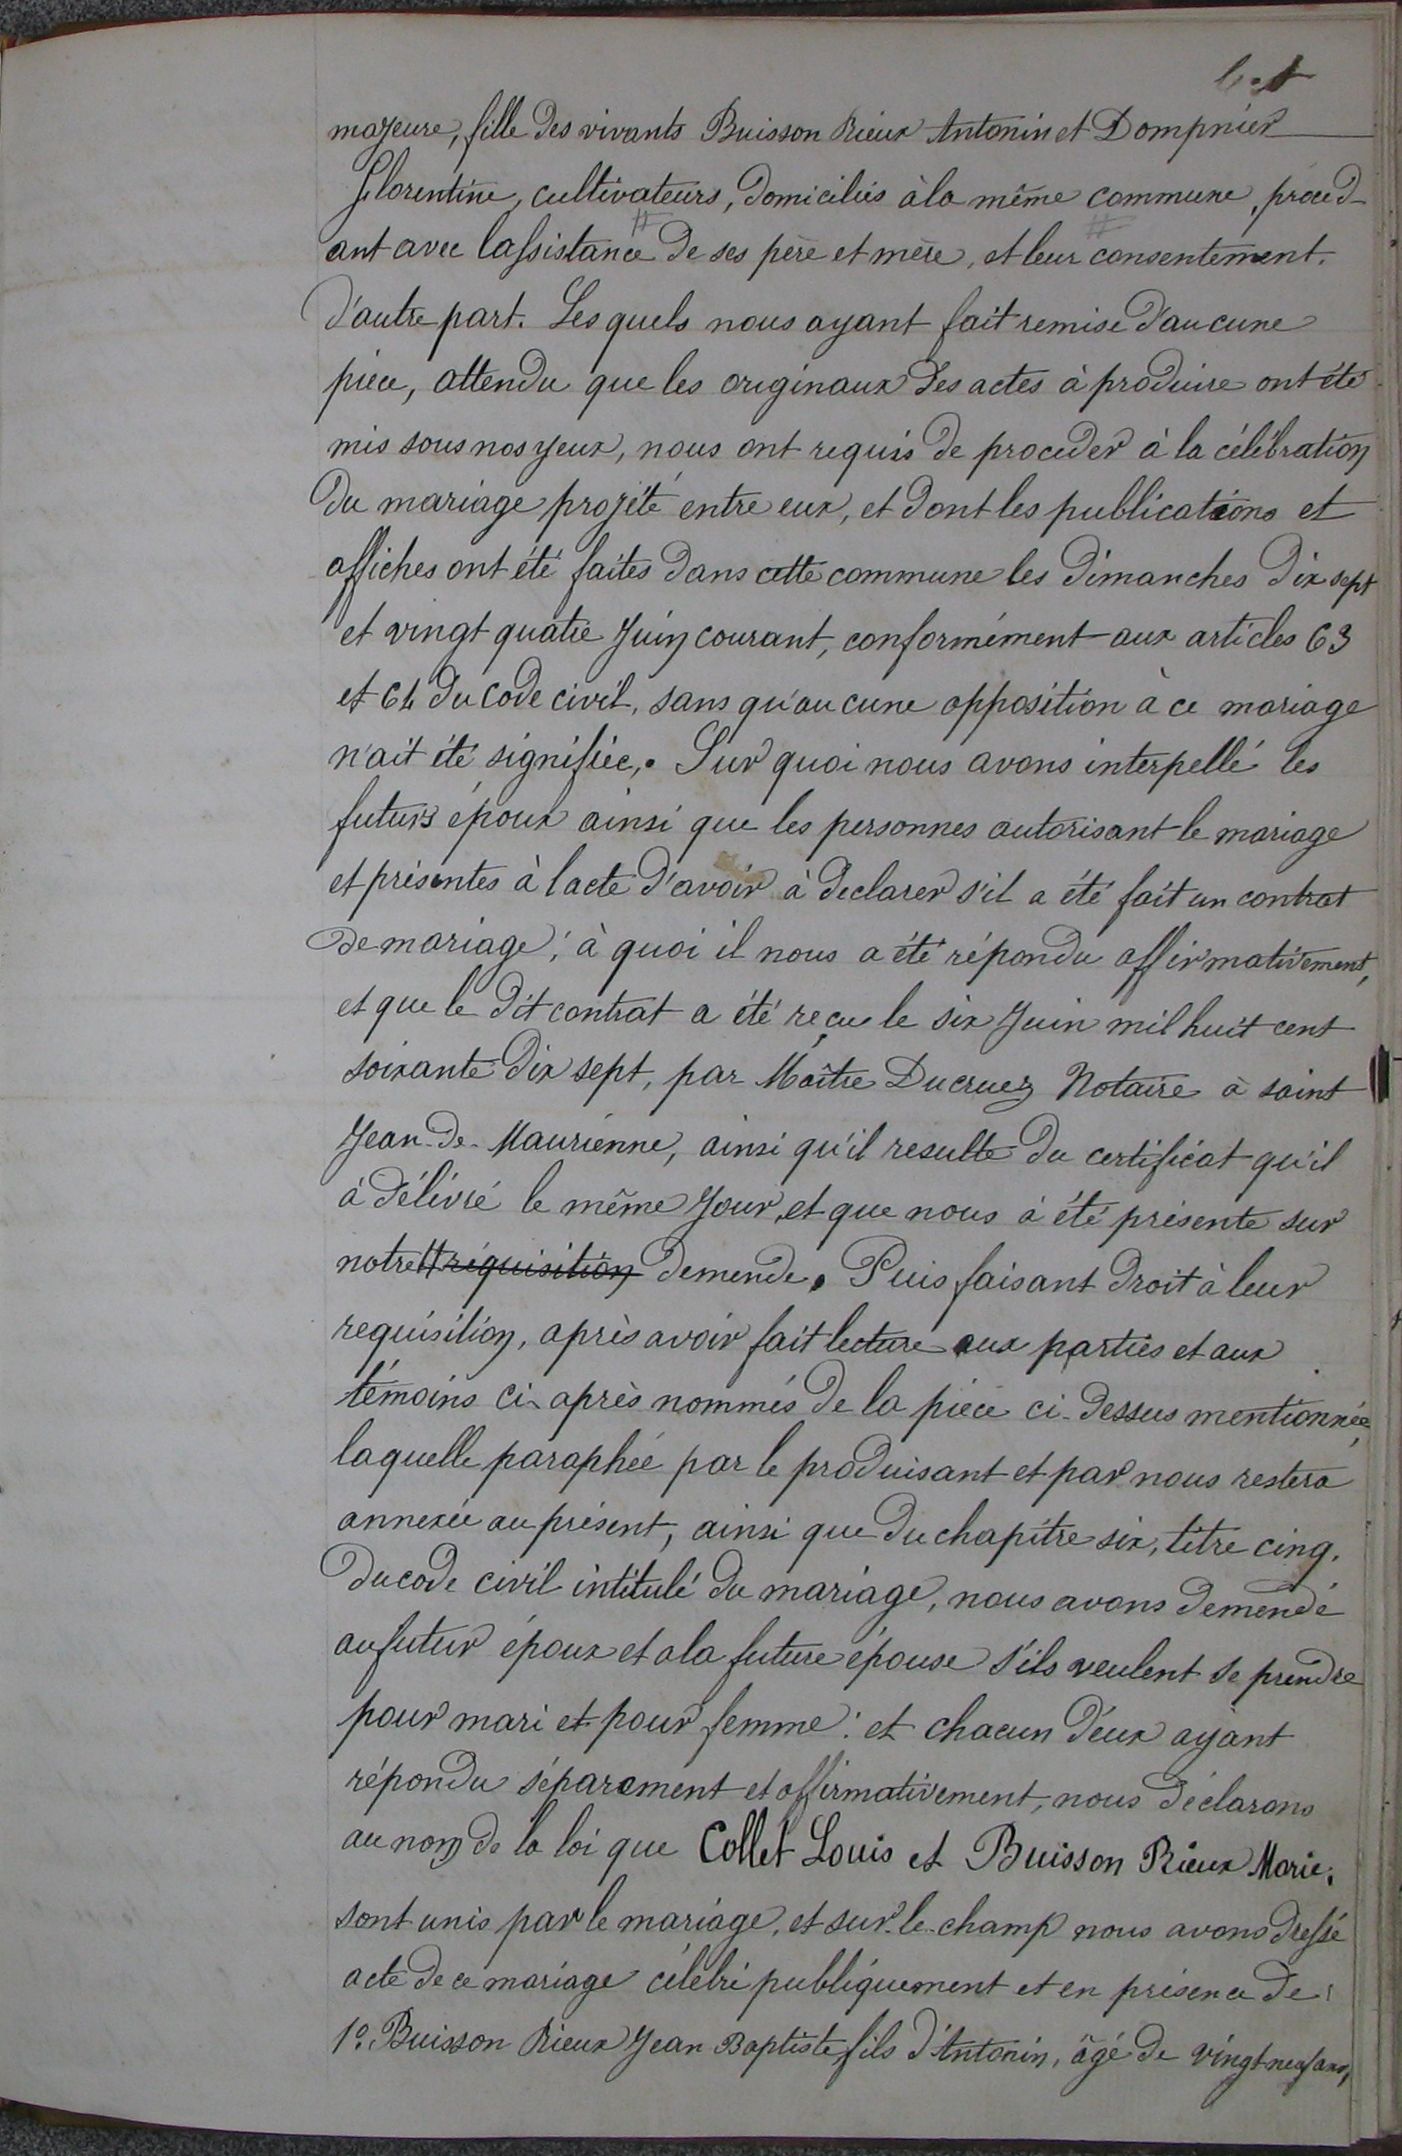 majeure, fille des vivants Buisson Rieux Antonin et Dompnier
Florentine, cultivateurs, domiciliés à la même commune, procéd-
ant avec l'assistance de ses père et mère, et leur consentement.
d'autre part. Les quels nous ayant fait remise d'aucune
pièce, attendu que les originaux des actes à produire ont été
mis sous nos yeux, nous ont requis de proceder à la célébration
du mariage projété entre eux, et dont les publications et
affiches ont été faites dans cette commune les dimanches dix sept
et vingt quatre Juin courant, conformément aux articles 63
et 64 du code civil, sans qu'aucune opposition à ce mariage
n'ait été signifiée,. Sur quoi nous avons interpellé les
futurs époux ainsi que les personnes autorisant le mariage
et présentes à l'acte d'avoir à declarer s'il a été fait un contrat
de mariage; à quoi il nous a été répondu affirmativement,
et que le dit contrat a été reçu le six Juin mil huit cent
soixante dix sept, par Maître Ducruez Notaire à saint
Jean-de-Maurienne, ainsi qu'il resulte du certificat qu'il
à délivré le même Jour, et que nous à été présente sur
notre réquisition demende. Puis faisant droit à leur
requisition, après avoir fait lecture aux parties et aux
témoins ci-après nommés de la pièce ci-dessus mentionnée,
laquelle paraphée par le produisant et par nous restera
annexée au présent, ainsi que du chapitre six, titre cinq.
du code civil intitulé du mariage, nous avons demendé
au futur époux et a la future épouse s'ils veulent se prendre
pour mari et pour femme: et chacun d'eux ayant
répondu séparement et affirmativement, nous déclarons
au nom de la loi que Collet Louis et Buisson Rieux Marie.
sont unis par le mariage, et sur-le-champ nous avons dressé
acte de ce mariage célébré publiquement et en présence de:
1º. Buisson Rieux Jean Baptiste, fils d'Antonin, âgé de vingt neuf ans,